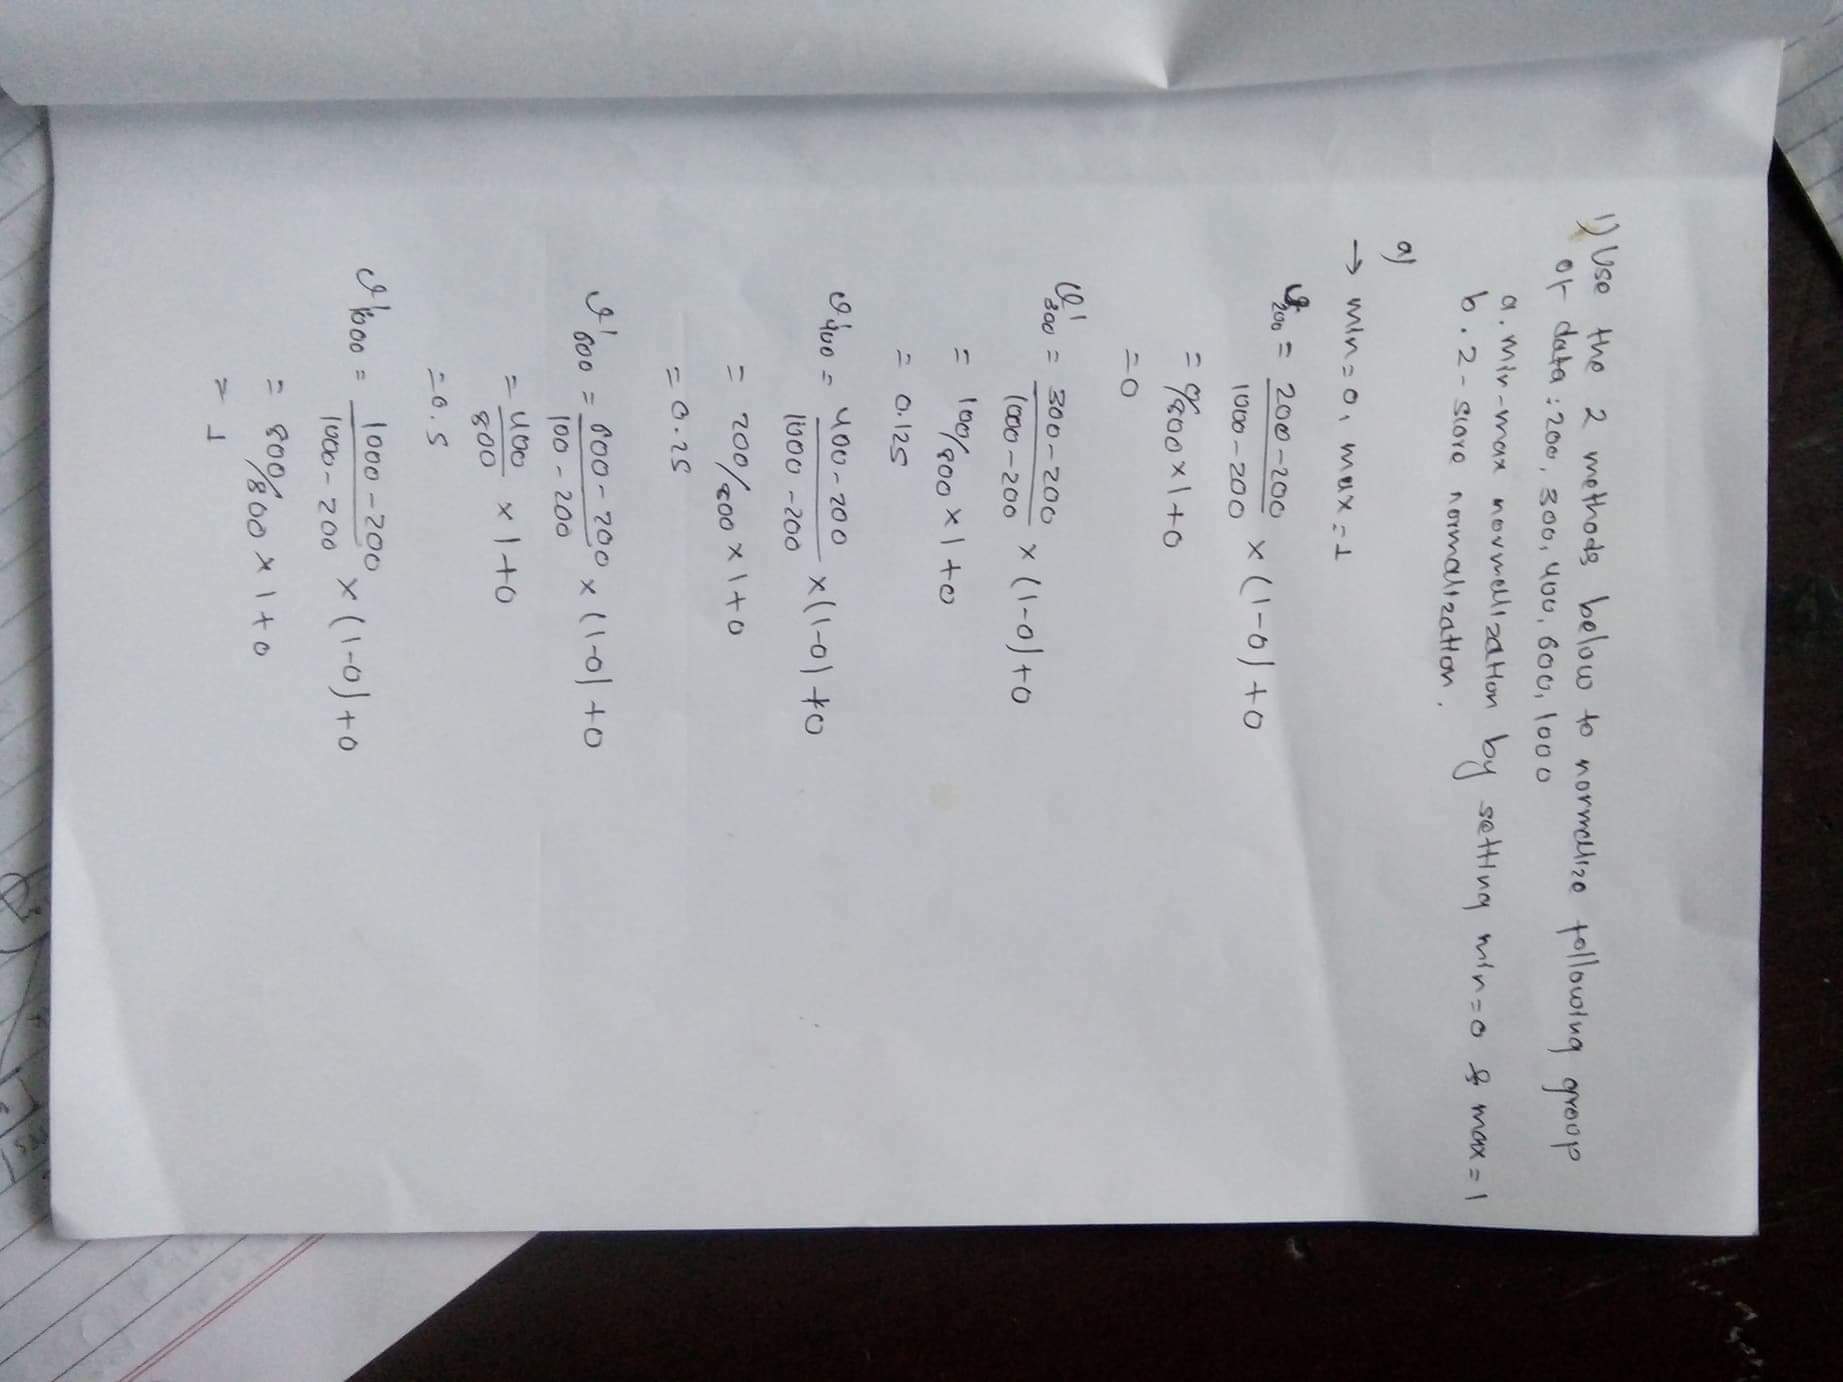 1) Use the 2 methods below to normalize following group
of data: 200, 300, 400, 600, 1000
a. min-max normalization by setting min=0 & max=1
b. z-score normalization.
a)
→ min=0, max=1
v'200 = 200-200/1000-200 × (1-0)+0
= 0/800×1+0
=0
v'300 = 300-200/1000-200 × (1-0)+0
= 100/800×1+0
= 0.125
v'400 = 400-200/1000-200 ×(1-0)+0
= 200/800×1+0
=0.25
v'600 = 600-200/100-200 × (1-0)+0
=400/800 ×1+0
=0.5
v'1000 = 1000-200/1000-200 × (1-0)+0
= 800/800 × 1+0
= 1